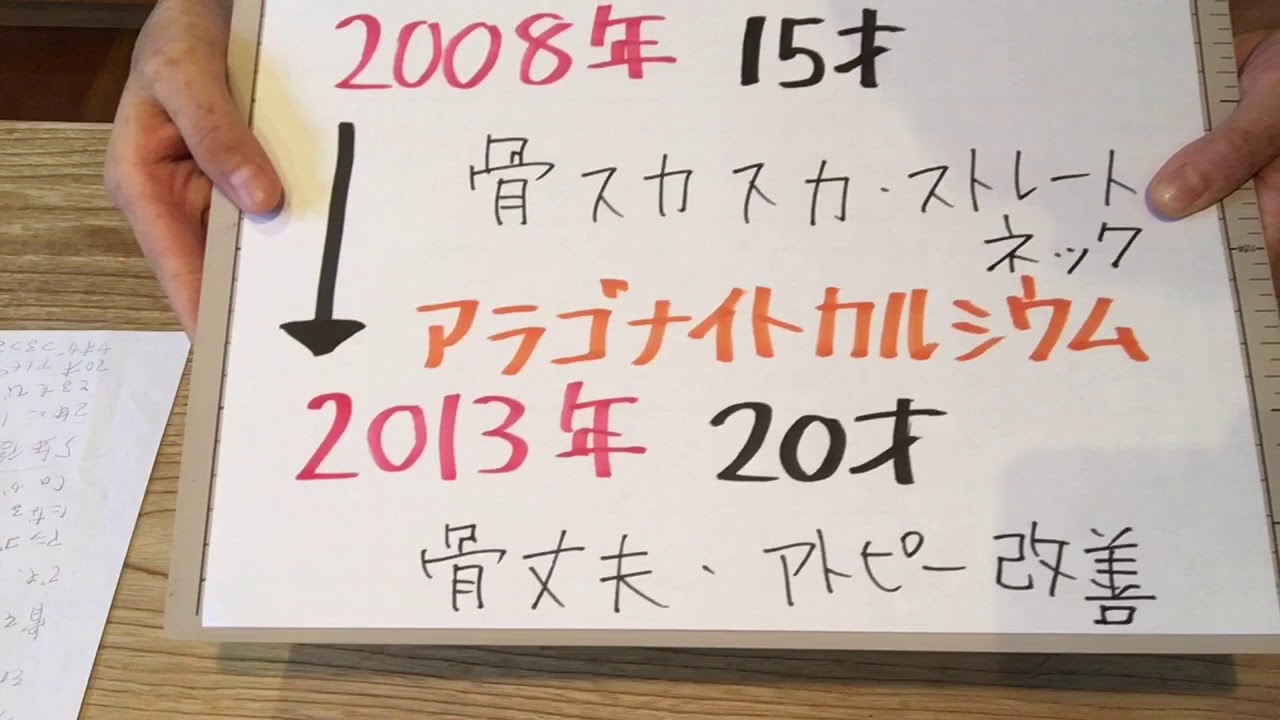 2008年 15才
骨スカスカ・ストレート
ネック
アラゴナイトカルシウム
2013年 20才
骨丈夫・アトピー改善